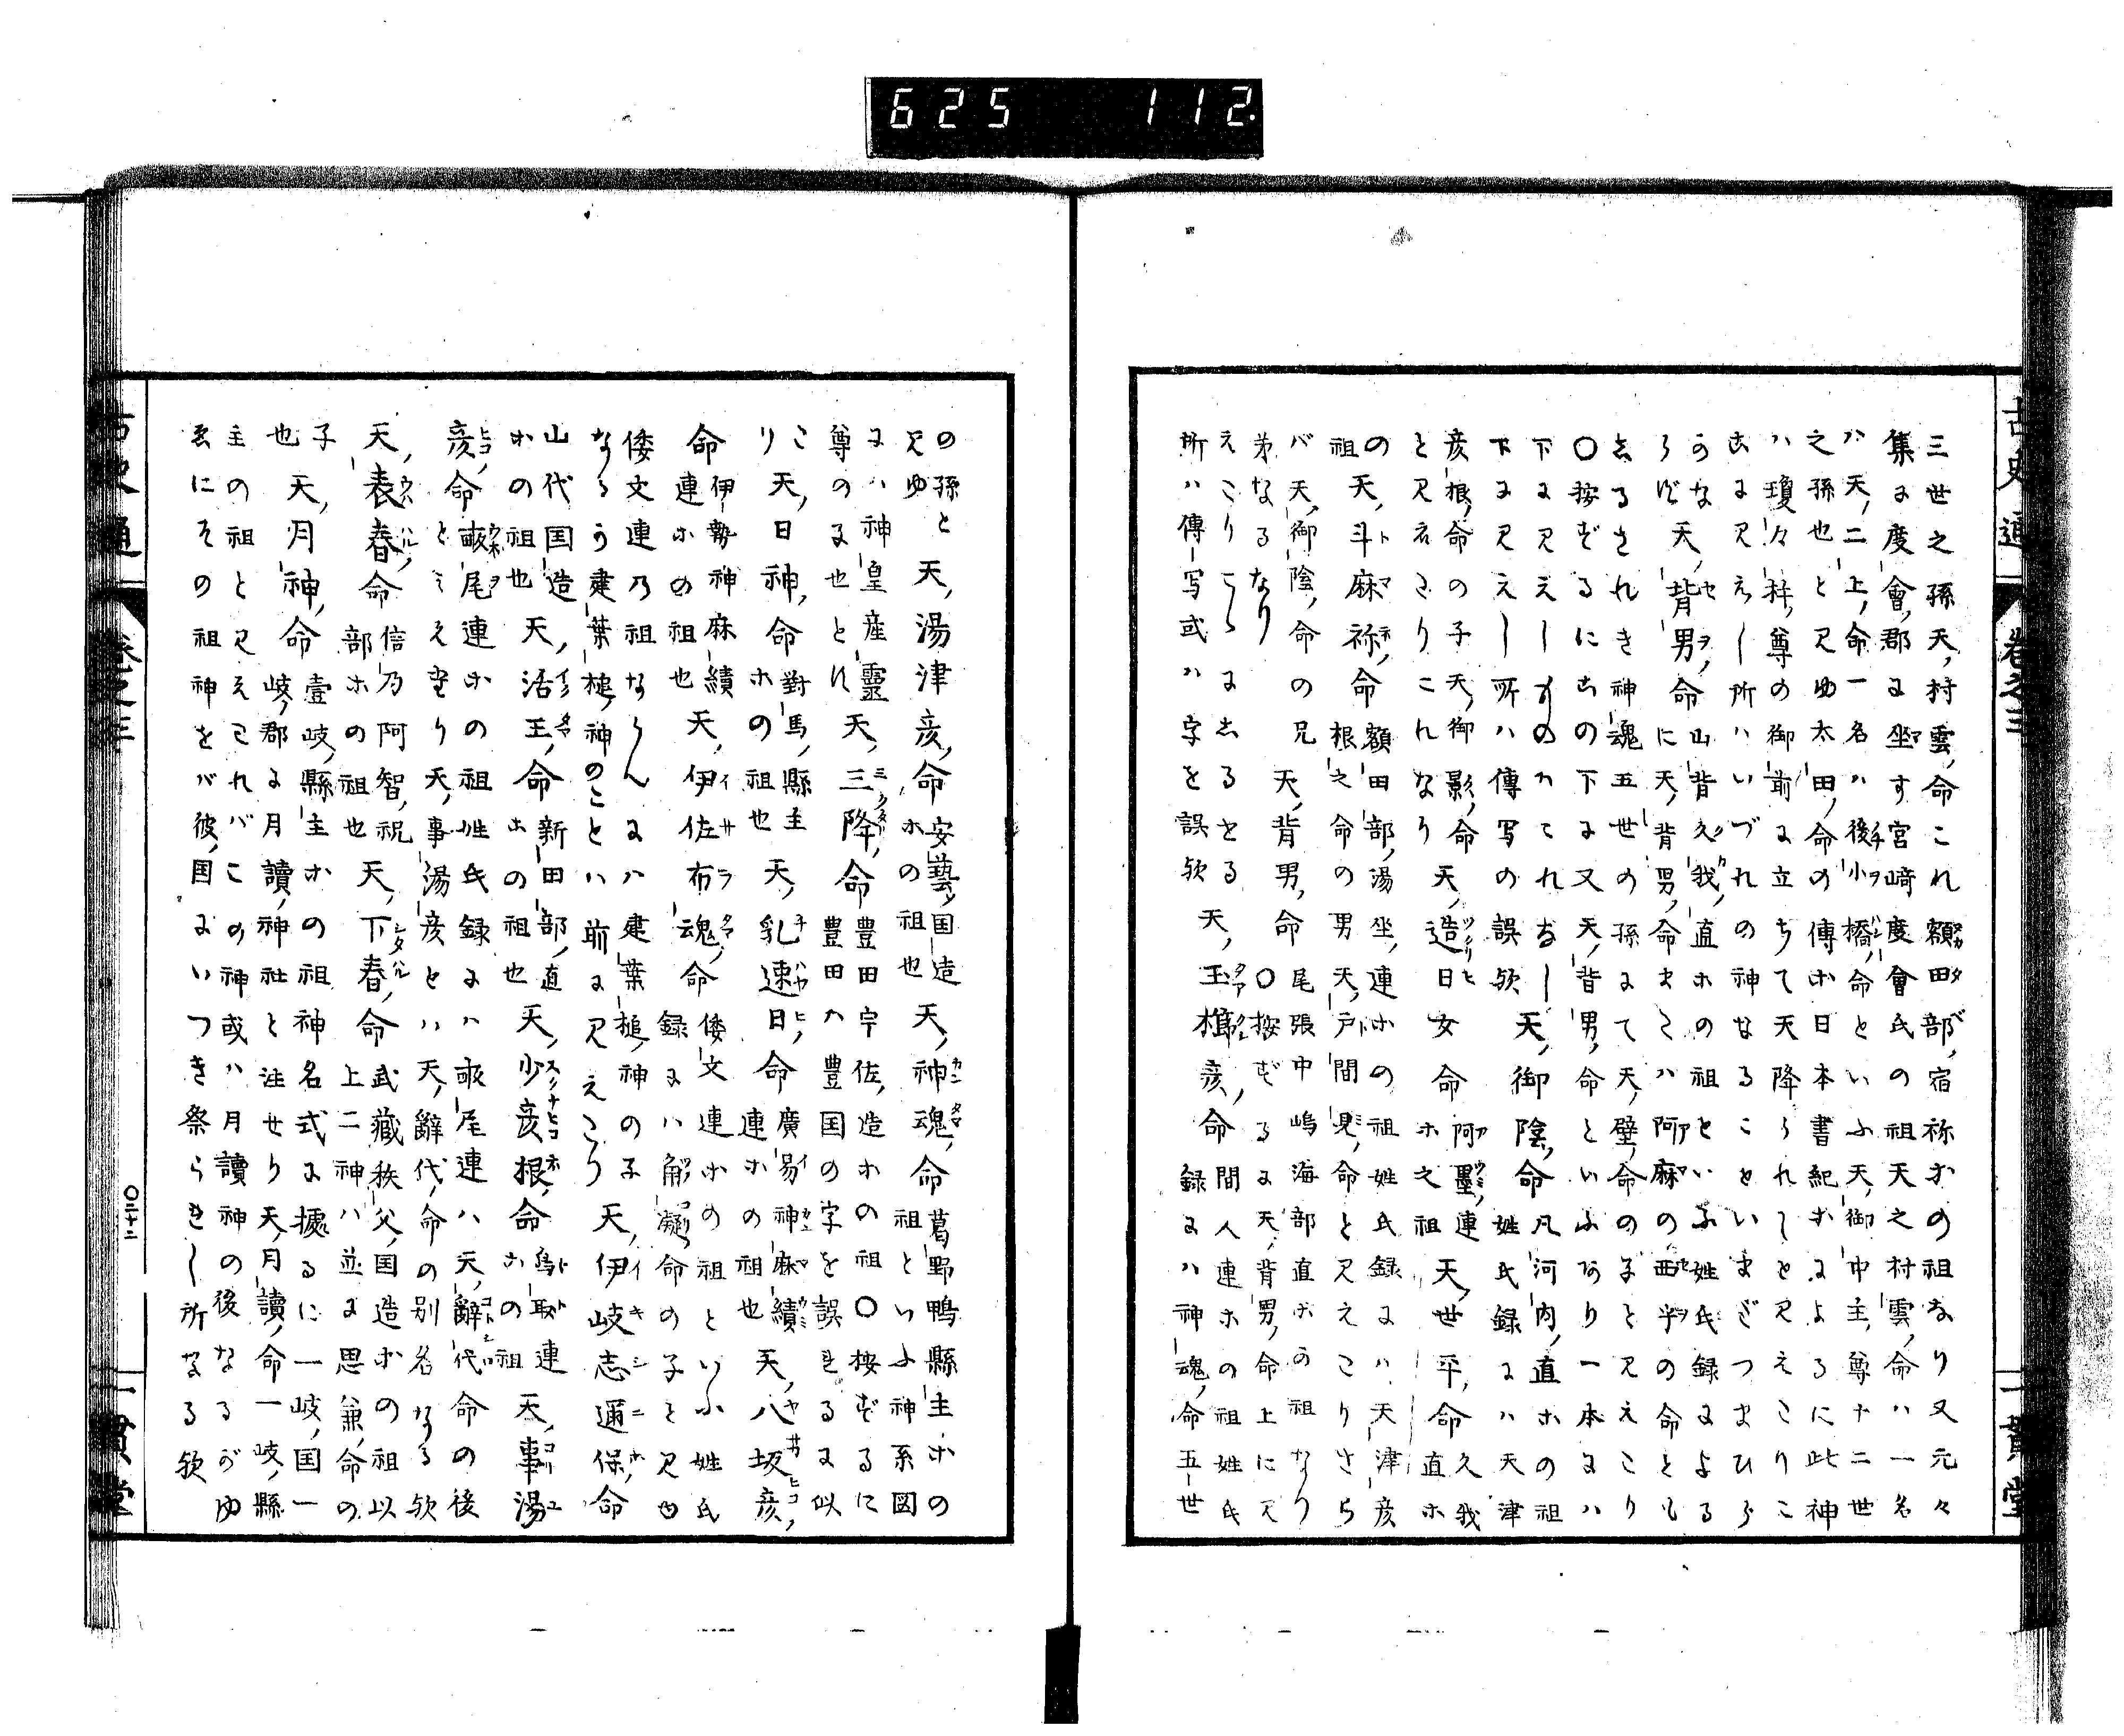 625 112
三世之孫天村雲命これ額田部宿祢ホの祖なり又元々
集に度會郡に坐す宮﨑度會氏の祖天之村雲命ハ一名
ハ天二上命一名ハ後小橋命といふ天御中主尊十二世
之孫也と見ゆ太田命の傳ホ日本書紀ホによるに此神
ハ瓊々杵尊の御前に立ちて天降られしと見えたりこ
ゝに見えし所ハいづれの神なることをいまだつまひら
かな
らず天背男命 山背久我直ホの祖といふ姓氏録による
に天背男命またハ阿麻の西乎の命とも
しるされき神魂五世の孫にて天壁命の子と見えたり
〇按ずるにこの下に又天背男命といふあり一本にハ
下に見えしものハこれなし 天御陰命 凡河内直ホの祖
姓氏録にハ天津
彦根命の子天御影命
と見えたりこれなり 天造日女命 阿墨連
ホ之祖 天世平命 久我
直ホ
の祖 天斗麻祢命 額田部湯坐連ホの祖姓氏録にハ天津彦
根之命の男天戸間見命と見えたりさら
バ天御陰命の兄
弟なるなり 天背男命 尾張中嶋海部直ホの祖なり
〇按ずるに天背男命上に見
えたりこゝにしるせる
所ハ傳写或ハ字を誤欤 天玉櫛彦命 間人連ホの祖姓氏
録にハ神魂命五世
の孫と
見ゆ 天湯津彦命 安藝国造
ホの祖也 天神魂命 葛野鴨縣主ホの
祖といふ神系図
にハ神皇産靈
尊の子也と見 天三降命 豊田宇佐造ホの祖〇按ずるに
豊田ハ豊国の字を誤れるに似
たり 天日神命 對馬縣主
ホの祖也 天乳速日命 廣湯神麻續
連ホの祖也 天八坂彦
命 伊勢神麻續
連ホの祖也 天伊佐布魂命 倭文連ホの祖といふ姓氏
録にハ觧凝命の子と見ゆ
倭文連乃祖ならんにハ建葉槌神の子
なるう建葉槌神のことハ前に見えたり 天伊岐志邇保命
山代国造
ホの祖也 天活玉命 新田部直
ホの祖也 天少彦根命 鳥取連
ホの祖 天事湯
彦命 畝尾連ホの祖姓氏録にハ畝尾連ハ天辭代命の後
とミえたり天事湯彦とハ天辭代命の別名なる欤
天表春命 信乃阿智祝
部ホの祖也 天下春命 武藏秩父国造ホの祖以
上二神ハ並に思兼命の
子
也 天月神命 壹岐縣主ホの祖神名式に據るに一岐国一
岐郡に月讀神社と注せり天月讀命一岐縣
主の祖と見えこれバこの神或ハ月讀神の後なるがゆ
ゑにその祖神をバ彼国にいつき祭られし所なる欤
古史通
卷之三
〇三十三
一貫堂